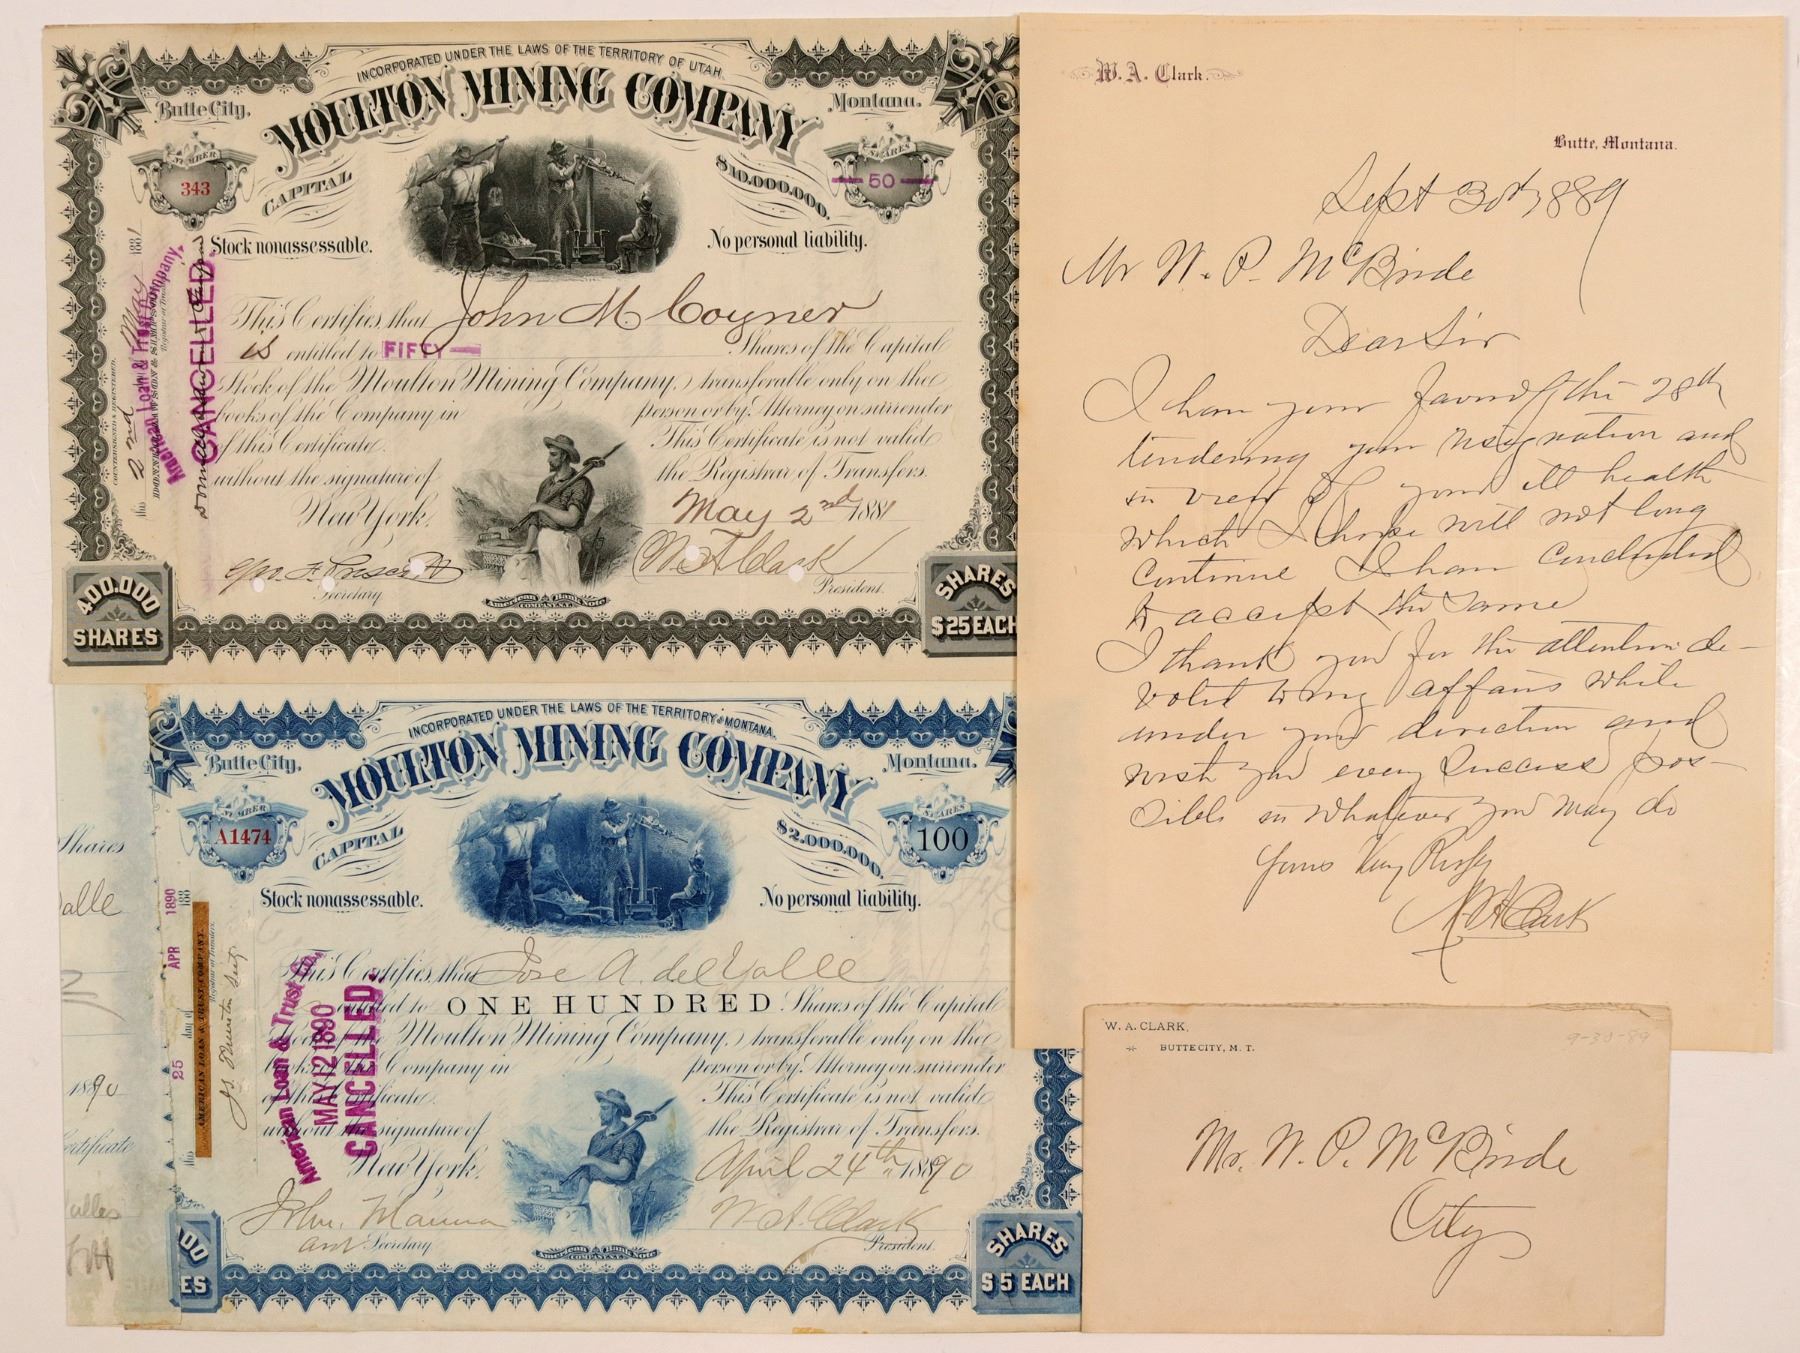 INCORPORATED UNDER THE LAWS OF THE TERRITORY OF UTAH.
MOULTON MINING COMPANY
Butte City, Montana.
NUMBER
343
SHARES
50
CAPITAL $10,000,000.
Stock nonassessable. No personal liability.
This Certifies that John M Coyner
is entitled to FIFTY Shares of the Capital
Stock of the Moulton Mining Company, transferable only on the
books of the Company in person or by Attorney on surrender
of this Certificate. This Certificate is not valid
without the signature of the Registrar of Transfers.
New York, May 2nd 1881
Secretary. W A Clark President.
American Bank Note
COMPANY N.Y.
400,000
SHARES
SHARES
$25 EACH
this 2nd May 1881
American Loan & Trust Company.
CANCELLED.
COUNTERSIGNED & REGISTERED.
Registrar of Transfers
INCORPORATED UNDER THE LAWS OF THE TERRITORY OF MONTANA.
MOULTON MINING COMPANY
Butte City, Montana.
NUMBER
A1474
SHARES
100
CAPITAL $2,000,000.
Stock nonassessable. No personal liability.
This Certifies that Jose A. del Valle
entitled to ONE HUNDRED Shares of the Capital
Stock of the Moulton Mining Company, transferable only on the
books of the Company in person or by Attorney on surrender
of this Certificate. This Certificate is not valid
without the signature of the Registrar of Transfers.
New York, April 24th 1890
Secretary W A. Clark President.
American Bank Note
COMPANY N.Y.
00
ES
SHARES
$5 EACH
American Loan & Trust Co.
MAY 12 1890
CANCELLED.
this 25 day of APR 1890 188
AMERICAN LOAN & TRUST COMPANY.
Registrar of Transfers
Shares
alle
1890
Certificate
W. A. Clark.
Butte, Montana.
Sept 30th 1889
Mr W. P. McBride
Dear Sir
I have your favor of the 28th
tendering your resignation and
in view of your ill health
which I hope will not long
continue I have concluded
to accept the same
I thank you for the attention de-
voted to my affairs while
under your direction and
wish you every success pos-
sible in whatever you may do
Yours Very Respy
W A Clark
W. A. CLARK,
BUTTE CITY, M. T.
9-30-89
Mr. W. P. McBride
City